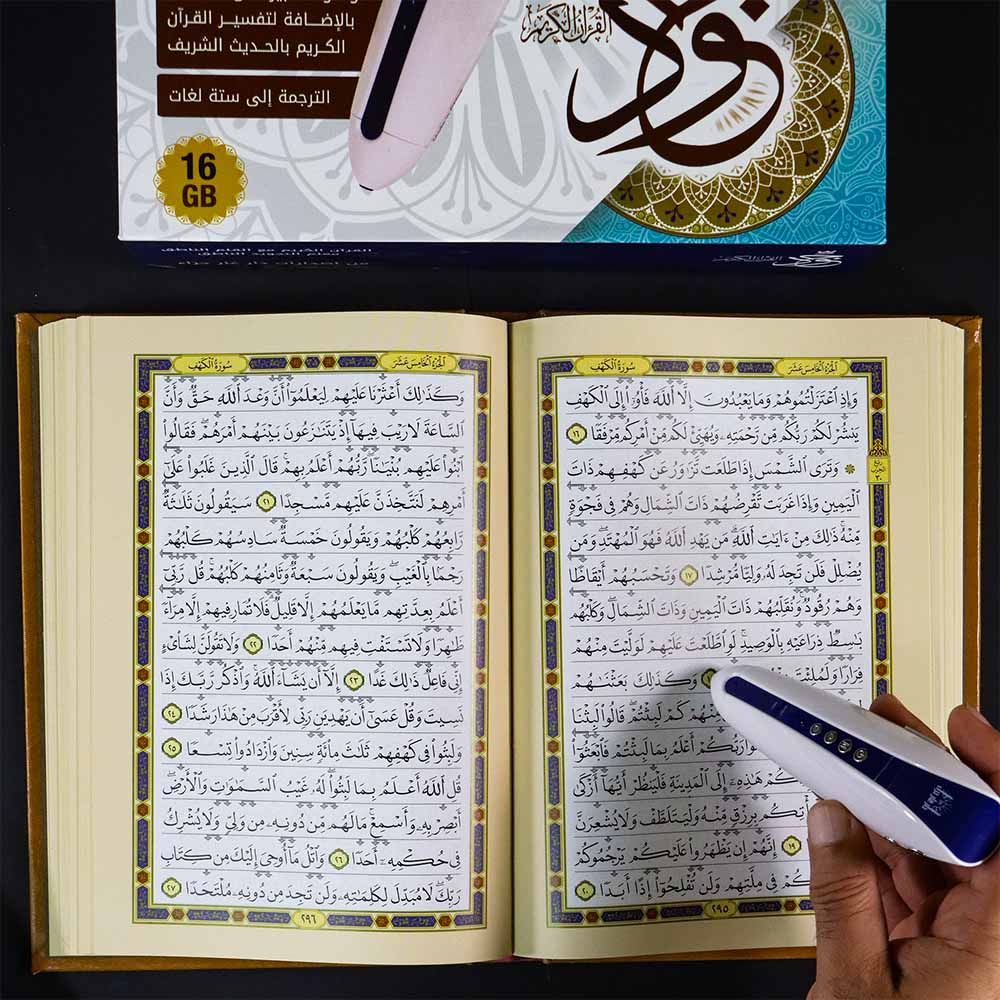 بالإضافة لتفسير القرآن
الكريم بالحديث الشريف
الترجمة إلى ستة لغات
16
GB
القرآن الكريم
نور
القرآن الكريم مع القلم الناطق
القرآن الكريم
الجزء الخامس عشر
سورة الكهف
وَإِذِ ٱعۡتَزَلۡتُمُوهُمۡ وَمَا يَعۡبُدُونَ إِلَّا ٱللَّهَ فَأۡوُۥٓاْ إِلَى ٱلۡكَهۡفِ
يَنشُرۡ لَكُمۡ رَبُّكُم مِّن رَّحۡمَتِهِۦ وَيُهَيِّئۡ لَكُم مِّنۡ أَمۡرِكُم مِّرۡفَقٗا ١٦
۞ وَتَرَى ٱلشَّمۡسَ إِذَا طَلَعَت تَّزَٰوَرُ عَن كَهۡفِهِمۡ ذَاتَ
ربع
الحزب
٣٠
ٱلۡيَمِينِ وَإِذَا غَرَبَت تَّقۡرِضُهُمۡ ذَاتَ ٱلشِّمَالِ وَهُمۡ فِي فَجۡوَةٖ
مِّنۡهُۚ ذَٰلِكَ مِنۡ ءَايَٰتِ ٱللَّهِۗ مَن يَهۡدِ ٱللَّهُ فَهُوَ ٱلۡمُهۡتَدِۖ وَمَن
يُضۡلِلۡ فَلَن تَجِدَ لَهُۥ وَلِيّٗا مُّرۡشِدٗا ١٧ وَتَحۡسَبُهُمۡ أَيۡقَاظٗا
وَهُمۡ رُقُودٞۚ وَنُقَلِّبُهُمۡ ذَاتَ ٱلۡيَمِينِ وَذَاتَ ٱلشِّمَالِۖ وَكَلۡبُهُم
بَٰسِطٞ ذِرَاعَيۡهِ بِٱلۡوَصِيدِۚ لَوِ ٱطَّلَعۡتَ عَلَيۡهِمۡ لَوَلَّيۡتَ مِنۡهُمۡ
فِرَارٗا وَلَمُلِئۡتَ وَكَذَٰلِكَ بَعَثۡنَٰهُمۡ
مِّنۡهُمۡ كَمۡ لَبِثۡتُمۡۖ قَالُواْ لَبِثۡنَا
رَبُّكُمۡ أَعۡلَمُ بِمَا لَبِثۡتُمۡ فَٱبۡعَثُوٓاْ
هَٰذِهِۦٓ إِلَى ٱلۡمَدِينَةِ فَلۡيَنظُرۡ أَيُّهَآ أَزۡكَىٰ
بِرِزۡقٖ مِّنۡهُ وَلۡيَتَلَطَّفۡ وَلَا يُشۡعِرَنَّ
١٩ إِنَّهُمۡ إِن يَظۡهَرُواْ عَلَيۡكُمۡ يَرۡجُمُوكُمۡ
فِي مِلَّتِهِمۡ وَلَن تُفۡلِحُوٓاْ إِذًا أَبَدٗا ٢٠
٢٩٥
الجزء الخامس عشر
سورة الكهف
وَكَذَٰلِكَ أَعۡثَرۡنَا عَلَيۡهِمۡ لِيَعۡلَمُوٓاْ أَنَّ وَعۡدَ ٱللَّهِ حَقّٞ وَأَنَّ
ٱلسَّاعَةَ لَا رَيۡبَ فِيهَآ إِذۡ يَتَنَٰزَعُونَ بَيۡنَهُمۡ أَمۡرَهُمۡۖ فَقَالُواْ
ٱبۡنُواْ عَلَيۡهِم بُنۡيَٰنٗاۖ رَّبُّهُمۡ أَعۡلَمُ بِهِمۡۚ قَالَ ٱلَّذِينَ غَلَبُواْ عَلَىٰٓ
أَمۡرِهِمۡ لَنَتَّخِذَنَّ عَلَيۡهِم مَّسۡجِدٗا ٢١ سَيَقُولُونَ ثَلَٰثَةٞ
رَّابِعُهُمۡ كَلۡبُهُمۡ وَيَقُولُونَ خَمۡسَةٞ سَادِسُهُمۡ كَلۡبُهُمۡ
رَجۡمَۢا بِٱلۡغَيۡبِۖ وَيَقُولُونَ سَبۡعَةٞ وَثَامِنُهُمۡ كَلۡبُهُمۡۚ قُل رَّبِّيٓ
أَعۡلَمُ بِعِدَّتِهِم مَّا يَعۡلَمُهُمۡ إِلَّا قَلِيلٞۗ فَلَا تُمَارِ فِيهِمۡ إِلَّا مِرَآءٗ
ظَٰهِرٗا وَلَا تَسۡتَفۡتِ فِيهِم مِّنۡهُمۡ أَحَدٗا ٢٢ وَلَا تَقُولَنَّ لِشَاْيۡءٍ
إِنِّي فَاعِلٞ ذَٰلِكَ غَدًا ٢٣ إِلَّآ أَن يَشَآءَ ٱللَّهُۚ وَٱذۡكُر رَّبَّكَ إِذَا
نَسِيتَ وَقُلۡ عَسَىٰٓ أَن يَهۡدِيَنِ رَبِّي لِأَقۡرَبَ مِنۡ هَٰذَا رَشَدٗا ٢٤
وَلَبِثُواْ فِي كَهۡفِهِمۡ ثَلَٰثَ مِاْئَةٖ سِنِينَ وَٱزۡدَادُواْ تِسۡعٗا ٢٥
قُلِ ٱللَّهُ أَعۡلَمُ بِمَا لَبِثُواْۖ لَهُۥ غَيۡبُ ٱلسَّمَٰوَٰتِ وَٱلۡأَرۡضِۖ
أَبۡصِرۡ بِهِۦ وَأَسۡمِعۡۚ مَا لَهُم مِّن دُونِهِۦ مِن وَلِيّٖ وَلَا يُشۡرِكُ
فِي حُكۡمِهِۦٓ أَحَدٗا ٢٦ وَٱتۡلُ مَآ أُوحِيَ إِلَيۡكَ مِن كِتَابِ
رَبِّكَۖ لَا مُبَدِّلَ لِكَلِمَٰتِهِۦ وَلَن تَجِدَ مِن دُونِهِۦ مُلۡتَحَدٗا ٢٧
٢٩٦